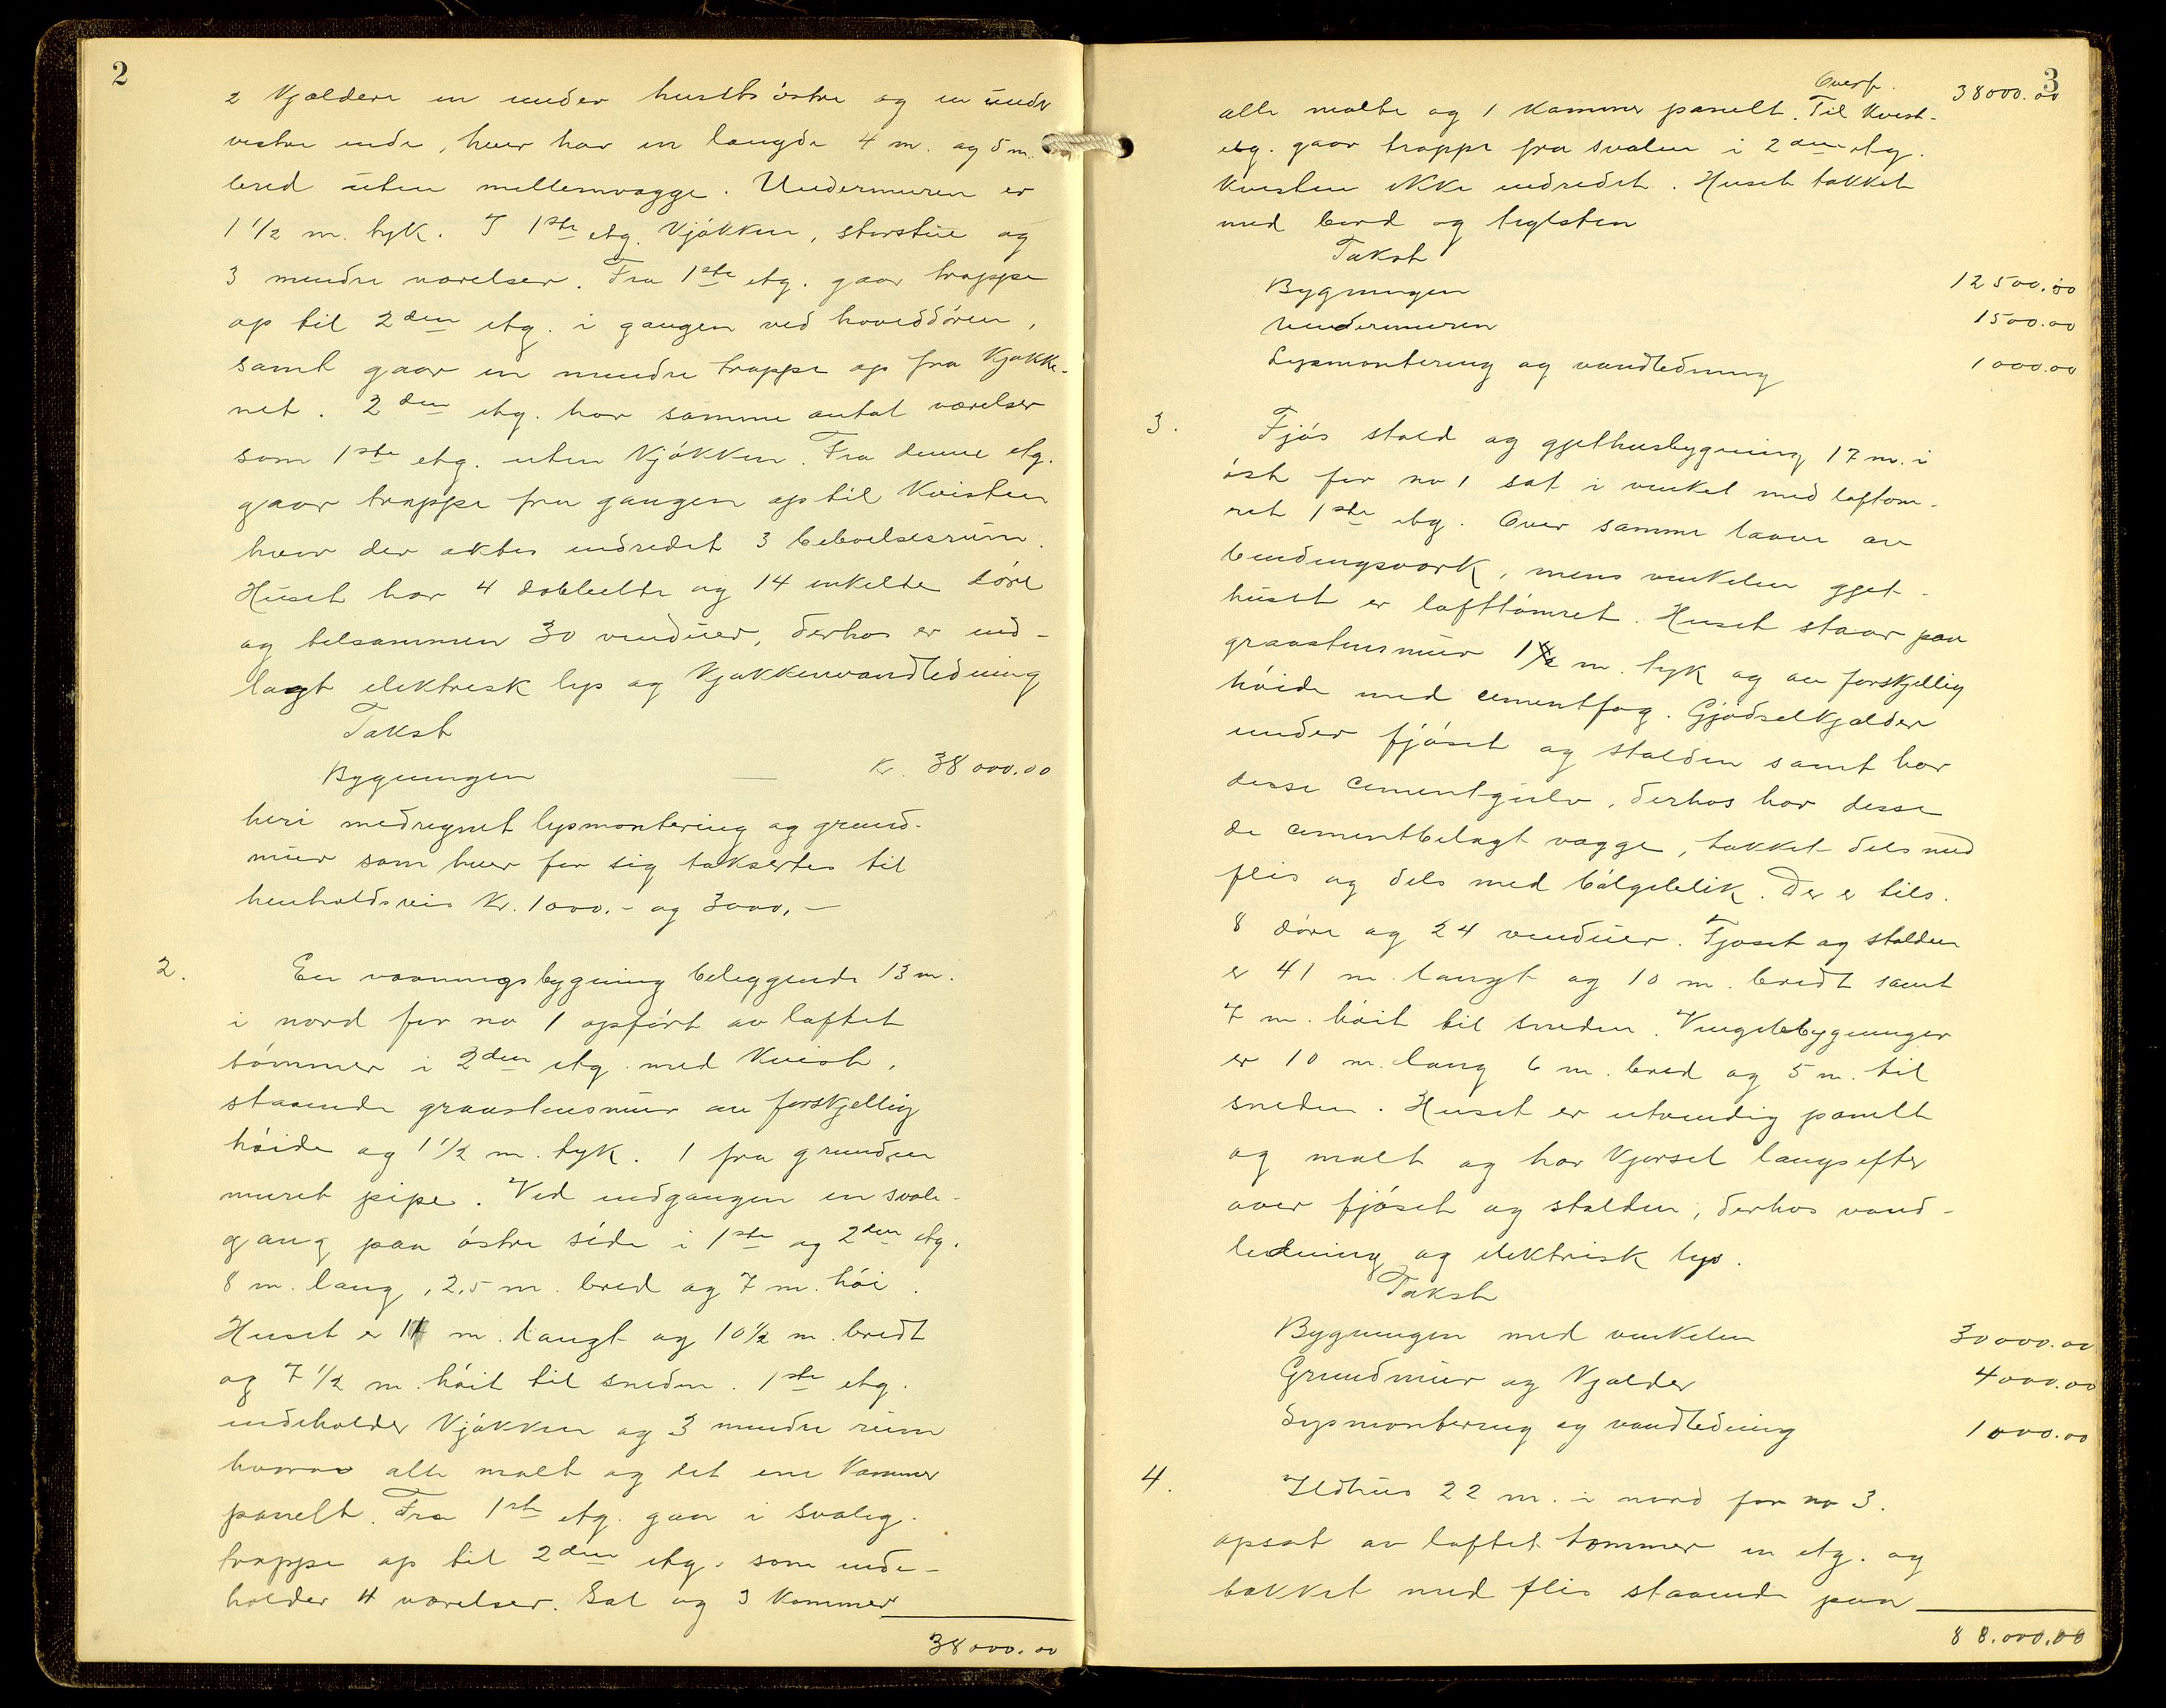 2
2 Kjældere en under husets østre og en under
vestre ende, hver har en længde 4 m. og 5 m.
bred uten mellemvægge. Undermuren er
1 1/2 m. tyk. I 1ste etg. Kjøkken, storstue og
3 mindre værelser. Fra 1ste etg. gaar trappe
op til 2den etg. i gangen ved hoveddøren,
samt gaar en mindre trappe op fra Kjøkke-
net. 2den etg. har samme antal værelser
som 1ste etg. uten Kjøkken. Fra denne etg.
gaar trappe fra gangen op til Kvisten
hvor der aktes indredet 3 beboelsesrum.
Huset har 4 dobbelte og 14 enkelte døre
og tilsammen 30 vinduer, derhos er ind-
lagt elektrisk lys og Kjøkkenvandledning
Takst
Bygningen — Kr. 38 000.00
heri medregnet lysmontering og grund-
mur som hver for sig taksertes til
henholdsvis Kr. 1000.- og 3000.-
2. En vaaningsbygning beliggende 13 m.
i nord for no 1 opført av laftet
tømmer i 2den etg. med Kvist,
staaende graastensmur av forskjellig
høide og 1 1/2 m. tyk. 1 fra grunden
muret pipe. Ved indgangen en svale-
gang paa østre side i 1ste og 2den etg.
8 m. lang, 2,5 m. bred og 7 m. høi.
Huset er m. langt og 10 1/2 m. bredt
og 7 1/2 m. høit til sneden. 1ste etg.
indeholder Kjøkken og 3 mindre rum
hvorav alle malt og det ene Kammer
panelt. Fra 1ste etg. gaar i svaleg.
trappe op til 2den etg. som inde-
holder 4 værelser. Sal og 3 Kammer
38000.00
3
Overf. 38000.00
alle malte og 1 Kammer panelt. Til Kvist-
etg. gaar trappe fra svalen i 2den etg.
Kvisten ikke indredet. Huset tækket
med bord og teglsten
Takst
Bygningen 12500.00
Undermuren 1500.00
Lysmontering og vandledning 1000.00
3. Fjøs stald og gjethusbygning 17 m. i
øst for no 1 sat i vinkel med lafttøm-
ret 1ste etg. Over samme laave av
bindingsverk, mens vinkelen gjet-
huset er lafttømret. Huset staar paa
graastensmur 1 1/2 m. tyk og av forskjellig
høide med cementfug. Gjødselkjælder
under fjøset og stalden samt har
disse cementgulv, derhos har disse
de cementbelagt vægge, tækket dels med
flis og dels med bølgeblik. Der er tils.
8 døre og 24 vinduer. Fjøset og stalden
er 41 m. langt og 10 m. bredt samt
7 m. høit til sneden. Vinkelbygningen
er 10 m. lang 6 m. bred og 5 m. til
sneden. Huset er utvendig panelt
og malt og har Kjørsel langsefter
over fjøset og stalden, derhos vand-
ledning og elektrisk lys.
Takst
Bygningen med vinkelen 30000.00
Grundmur og Kjælder 4000.00
Lysmontering og vandledning 1000.00
4. Ildhus 22 m. i nord for no 3.
opsat av laftet tømmer en etg. og
tækket med flis staaende paa
88.000.00